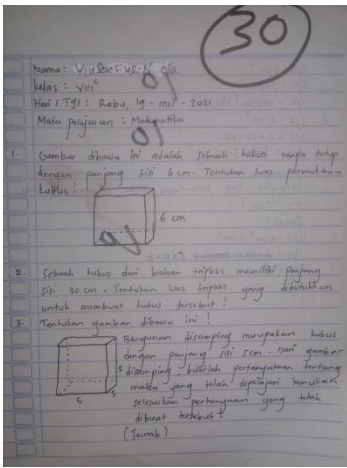 30
Nama: Vinsensius. N
Kelas: VIII C
Hari / Tgl: Rabu, 19 - mei - 2021
Mata pelajaran : Matematika
1. Gambar dibawa ini adalah sebuah kubus tanpa tutup
dengan panjang sisi 6 cm. Tentukan luas permukaan
kubus!
6 cm
2. Sebuah kubus dari bahan tripleks memiliki panjang
sisi 30 cm. Tentukan luas tripleks yang dibutuhkan
untuk membuat kubus tersebut!
3. Tentukan gambar dibawa ini!
Bangunan disamping merupakan kubus
dengan panjang sisi 5cm. Dari gambar
disamping buatlah pertanyataan tentang
materi yang telah dipelajari kemudian
selesaikan pertanyaan yang telah
dibuat tersebut!
5
5
5
(Jawab)